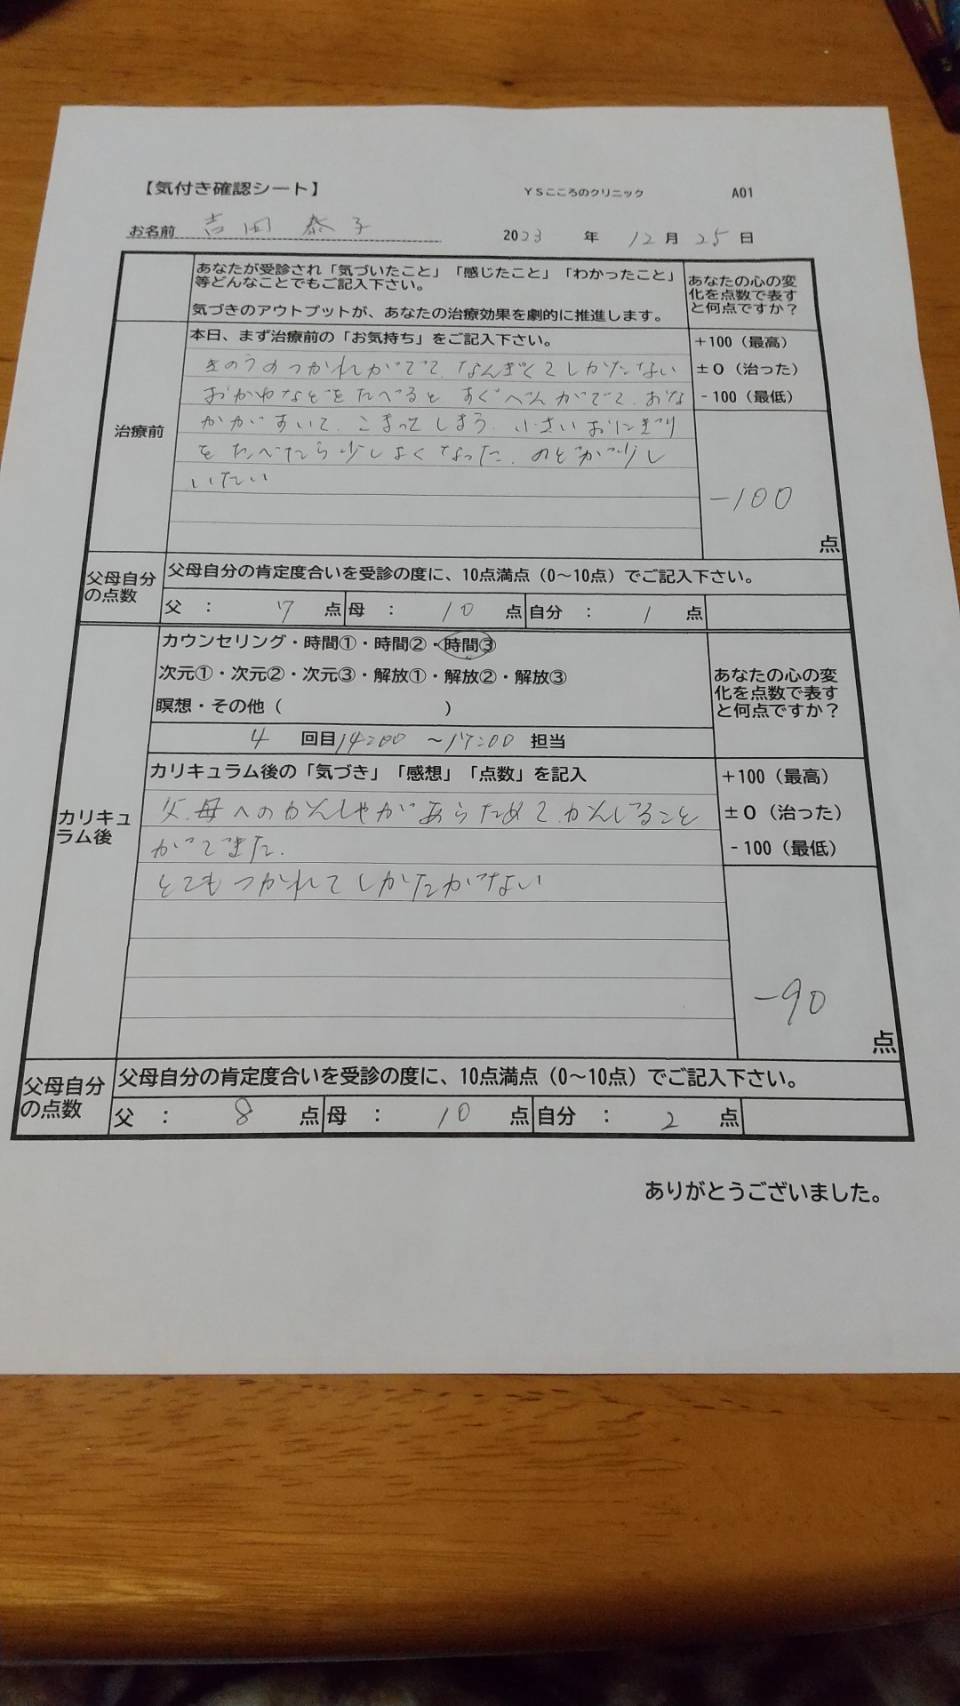 【気付き確認シート】 YSこころのクリニック A01
お名前 吉田 泰子 2023 年 12 月 25 日
あなたが受診され「気づいたこと」「感じたこと」「わかったこと」
等どんなことでもご記入下さい。
気づきのアウトプットが、あなたの治療効果を劇的に推進します。
あなたの心の変
化を点数で表す
と何点ですか？
治療前
本日、まず治療前の「お気持ち」をご記入下さい。
きのうのつかれがでて、なんぎくてしかたない
おかゆなどをたべると すぐべんがでて、おな
かがすいて、こまってしまう。小さいおにぎり
をたべたら少しよくなった。のどが少し
いたい
+100（最高）
±0（治った）
-100（最低）
-100
点
父母自分
の点数
父母自分の肯定度合いを受診の度に、10点満点（0〜10点）でご記入下さい。
父 ： 7 点 母 ： 10 点 自分 ： 1 点
カリキュ
ラム後
カウンセリング・時間①・時間②・時間③
次元①・次元②・次元③・解放①・解放②・解放③
瞑想・その他（ ）
4 回目 14:00 〜17:00 担当
あなたの心の変
化を点数で表す
と何点ですか？
カリキュラム後の「気づき」「感想」「点数」を記入
父、母へのかんしゃがあらためて、かんじること
ができた。
とてもつかれてしかたがない
+100（最高）
±0（治った）
-100（最低）
-90
点
父母自分
の点数
父母自分の肯定度合いを受診の度に、10点満点（0〜10点）でご記入下さい。
父 ： 8 点 母 ： 10 点 自分 ： 2 点
ありがとうございました。